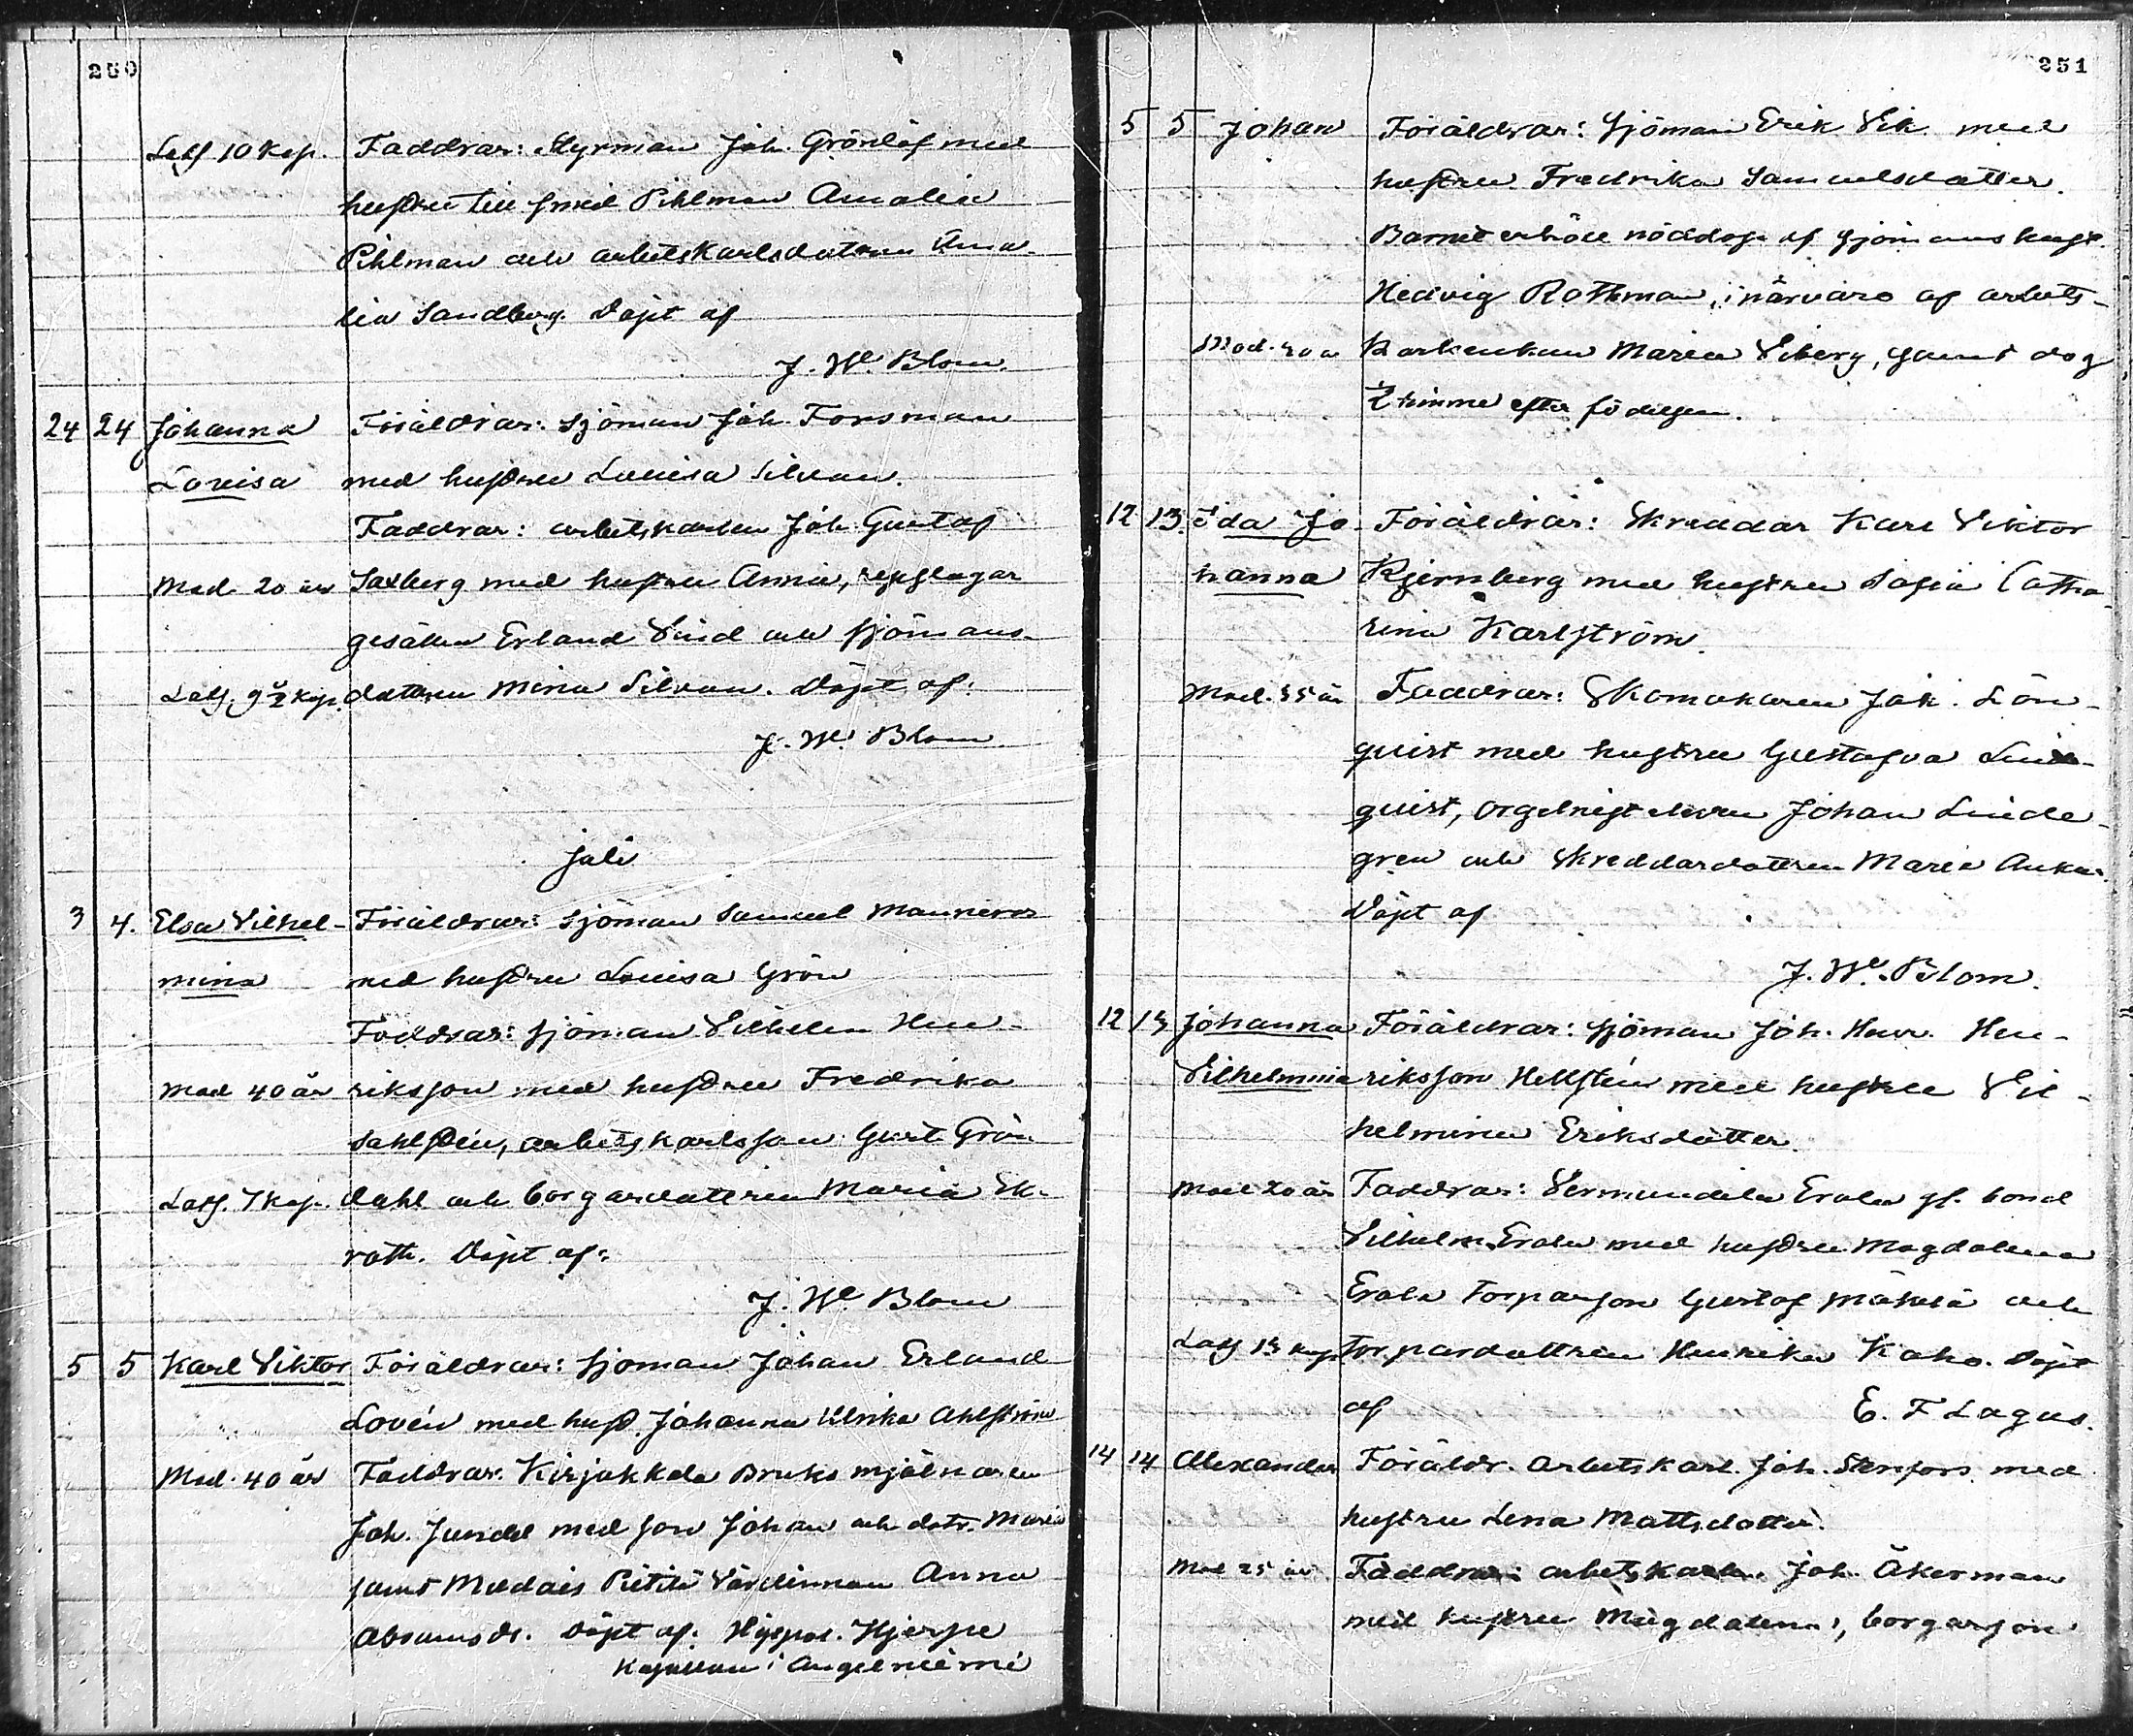 250
Laff 10 kop. Faddrar: Styrman Joh. Grönlöf med
hustru till smed Pihlman Amalia
Pihlman och arbetskarlsdottren Ama-
lia Sandberg. Döpt af
J. W. Blom.
24 24 Johanna Föräldrar: Sjöman Joh. Forsman
Lovisa med hustru Lovisa Silvan.
Faddrar: arbetskarlen Joh. Gustaf
Mod. 20 år Saxberg med hustru Anna, repslagar
gesällen Erland Lind och sjömans-
Laff. 9½ kop. dottren Mina Silvan. Döpt af:
J. W. Blom
Juli
3 4. Elsa Vilhel- Föräldrar: Sjöman Samuel
mina med hustru Lovisa Grön
Faddrar: sjöman Vilhelm Hen-
Mod 40 år riksson med hustru Fredrika
Sahlstén, arbetskarlsson Gust. Grön
Laff. 7 kop. dahl och borgardottren Maria Ek-
roth. Döpt af:
J. W. Blom
5 5 Karl Viktor Föräldrar: Sjöman Johan Erland
Lovén med hust. Johanna Ulrika Ahlström
Mod. 40 år Faddrar: Kirjakkala Bruks mjölnaren
Joh. Jundel med son Johan och dotr. Maria
samt Meldais Pietilä Värdinnan Anna
Abramsdr. Döpt af: Hjerpe
Kapellan i Angelniemi
251
5 5 Johan Föräldrar: Sjöman Erik Vik med
hustru Fredrika Samuelsdotter.
Barnet erhöll nöddop af sjömans hust.
Hedvig Rothman, i närvaro af arbets-
Mod. karlenkan Maria Viberg, samt dog
½ timme efter födelsen.
12 13. Ida Jo- Föräldrar: Skräddar Karl Viktor
hanna Kjernberg med hustru Sofia Catha-
rina Karlström.
Mod. 35 år Faddrar: Skomakaren Joh. Lön-
quist med hustru Gustafva Lind-
quist, orgelnist eleven Johan Linde-
gren och Skreddardottren Maria
Döpt af
J. W. Blom.
12 Johanna Föräldrar: Sjöman Joh. Henr. Hen-
Vilhelmina riksson Hellstén med hustru Vil-
helmina Eriksdotter.
Mod 20 år Faddrar: Vermundila Erola gf. bond
Vilhelm Erola med hustru Magdalena
Erola torparson Gustaf Mäkelä och
Laff torpardottren Henrika Kaho. Döpt
af E. F Lagus.
14 14 Alexander Föräldr. Arbetskarl Joh. Stenfors med
hustru Lena Mattsdotter.
Mod 25 år Faddrar: arbetskarlen Joh. Åkerman
med hustru Magdalena, borgarson